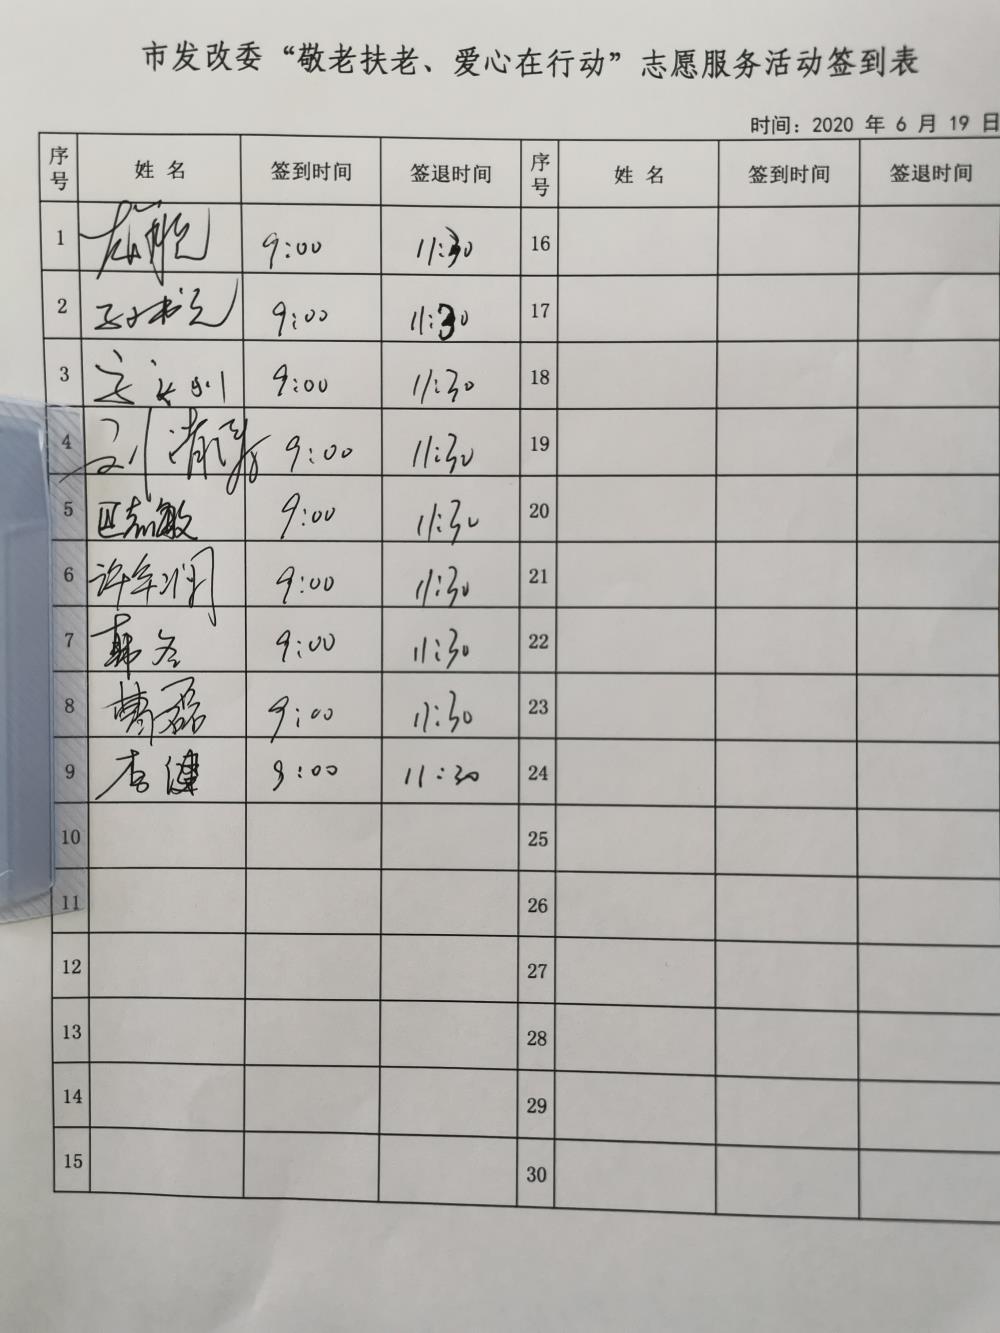 市发改委“敬老扶老、爱心在行动”志愿服务活动签到表
时间：2020 年 6 月 19 日
序号 姓 名 签到时间 签退时间 序号 姓 名 签到时间 签退时间
1 9:00 11:30 16
2 9:00 11:30 17
3 9:00 11:30 18
4 刘 9:00 11:30 19
5 匹志敏 9:00 11:30 20
6 许 9:00 11:30 21
7 韩冬 9:00 11:30 22
8 曹磊 9:00 11:30 23
9 健 9:00 11:30 24
10 25
11 26
12 27
13 28
14 29
15 30